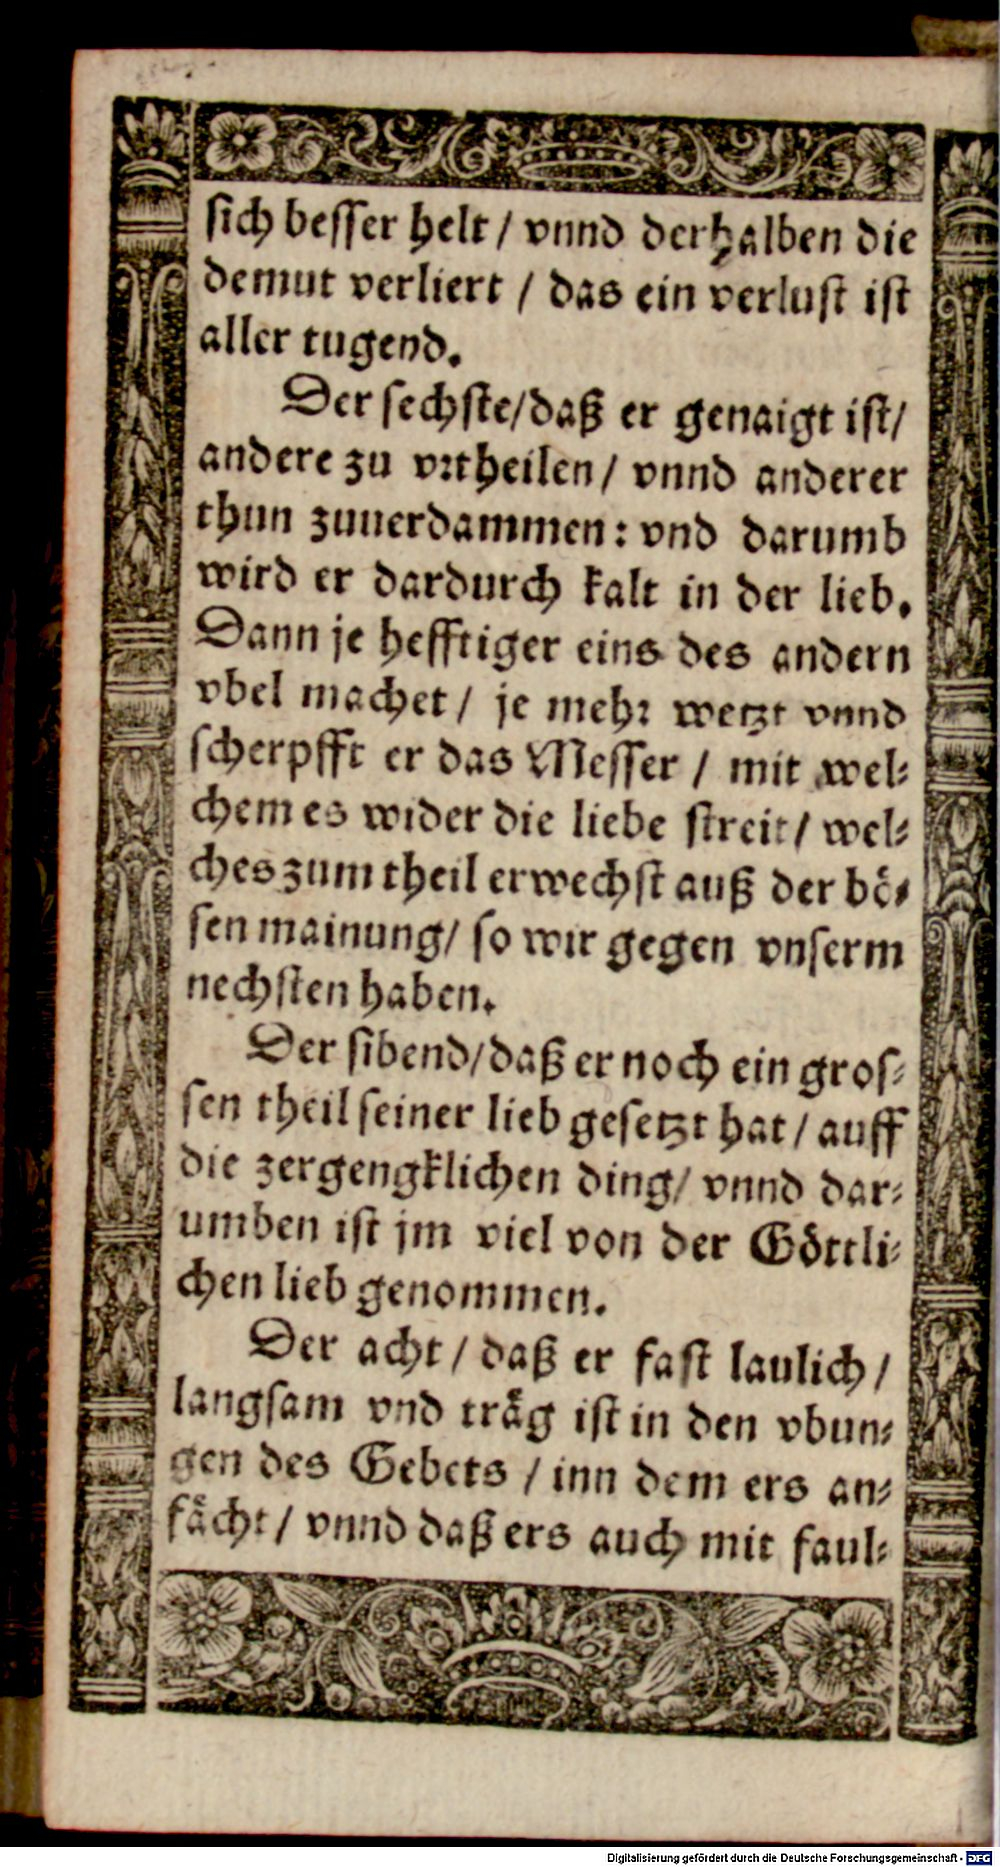 sich besser helt / vnnd derhalben die
demut verliert / das ein verlust ist
aller tugend.
Der sechste/daß er genaigt ist/
andere zu vrtheilen / vnnd anderer
thun zuuerdammen: vnd darumb
wird er dardurch kalt in der lieb.
Dann je hefftiger eins des andern
vbel machet / je mehr wetzt vnnd
scherpfft er das Messer / mit wel-
chem es wider die liebe streit / wel-
ches zum theil erwechst auß der bö-
sen mainung/ so wir gegen vnserm
nechsten haben.
Der sibend/daß er noch ein gros-
sen theil seiner lieb gesetzt hat / auff
die zergengklichen ding/ vnnd dar-
umben ist jm viel von der Göttli-
chen lieb genommen.
Der acht / daß er fast laulich /
langsam vnd träg ist in den vbun-
gen des Gebets / inn dem ers an-
fächt / vnnd daß ers auch mit faul-
Digitalisierung gefördert durch die Deutsche Forschungsgemeinschaft - DFG